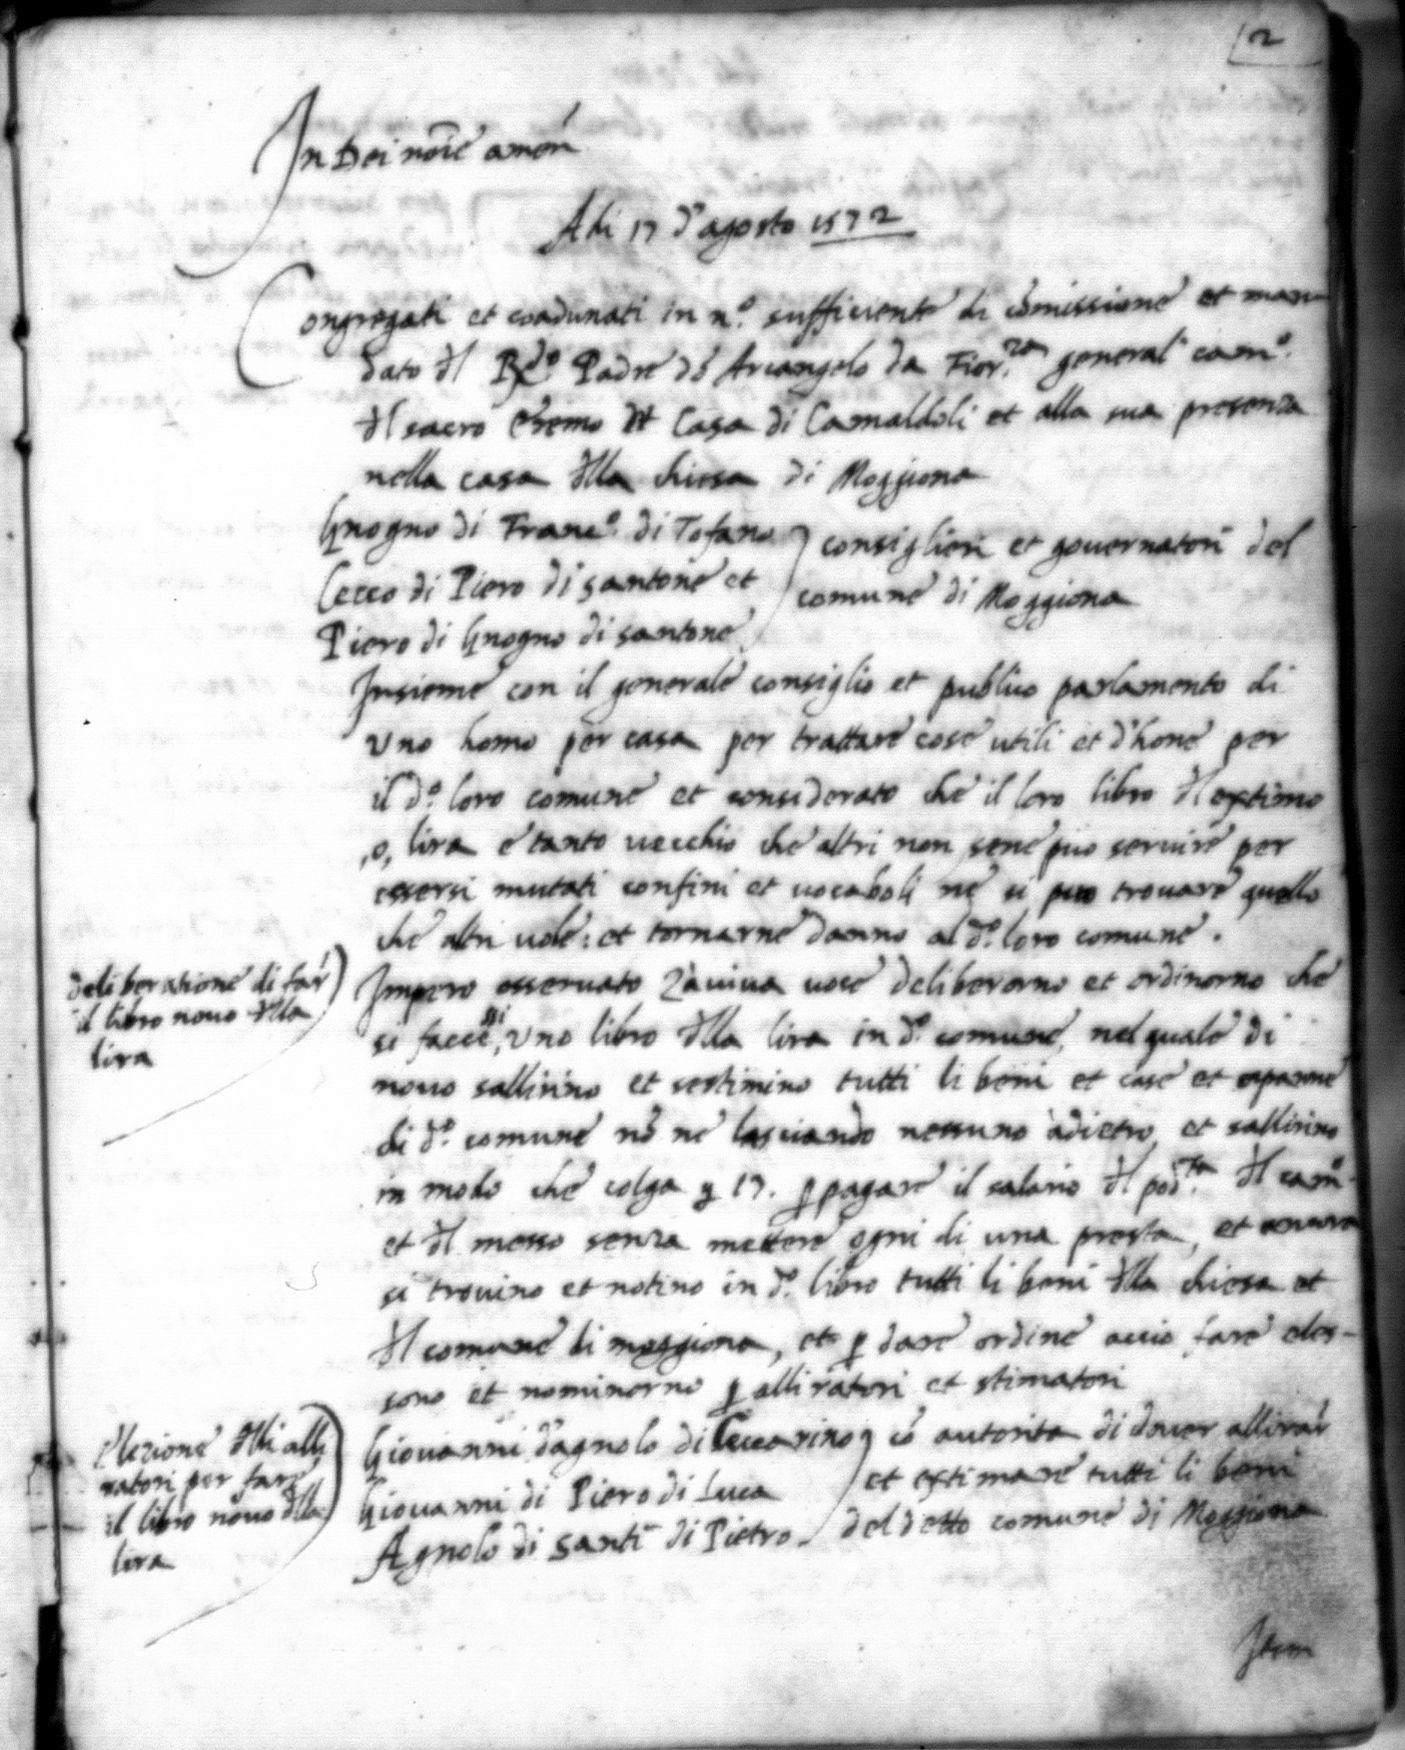 2
In Dei no̅ie amen
Adi 17 d'agosto 1572
Congregati et coadunati in n.º sufficiente di co̅missione et man
dato dl R.do Padre do̅ Arcangelo da Fior.za general cam.º
dl sacro Eremo et Casa di Camaldoli et alla sua presenza
nella casa dlla chiesa di Moggiona
Gnogno di Franc.º di Tofano
Cecco di Piero di santone et
Piero di Gnogno di santone
consiglieri et gouernatori del
comune di Moggiona
Insieme con il generale consiglio et publico parlamento di
uno homo per casa per trattare cose utili et d'hone per
il d.º loro comune et considerato che il loro libro dl extimo
,o, lira e tanto uecchio che altri non sene puo seruire per
essersi mutati confini et uocaboli ne si puo trouare quello
che altri uole: et tornarne danno al d.º loro comune.
deliberatione di far
il libro nouo dlla
lira
Impero osseruato à uiua uoce deliberorno et ordinorno che
si facessi uno libro dlla lira in d.º comune, nel quale di
nouo sallirino et sestimino tutti li beni et case et
di d.º comune no̅ ne lasciando nessuno adietro, et sallirino
in modo che colga 17. p pagare il salario dl pod.ta dl cam.º
et dl messo senza mettere ogni di una presta, et ancora
si trouino et notino in d.º libro tutti li beni dlla chiesa et
dl comune di moggiona, et p dare ordine accio fare eles-
sono et nominorno p alliratori et stimatori
Elezione dlli alli
ratori per fare
il libro nouo dlla
lira
Giouanni d'agnolo di Ceccarino
Giouanni di Piero di Luca
Agnolo di Santi di Pietro
co̅ autorita di douer allirar
et extimare tutti li beni
del detto comune di Moggiona
Item